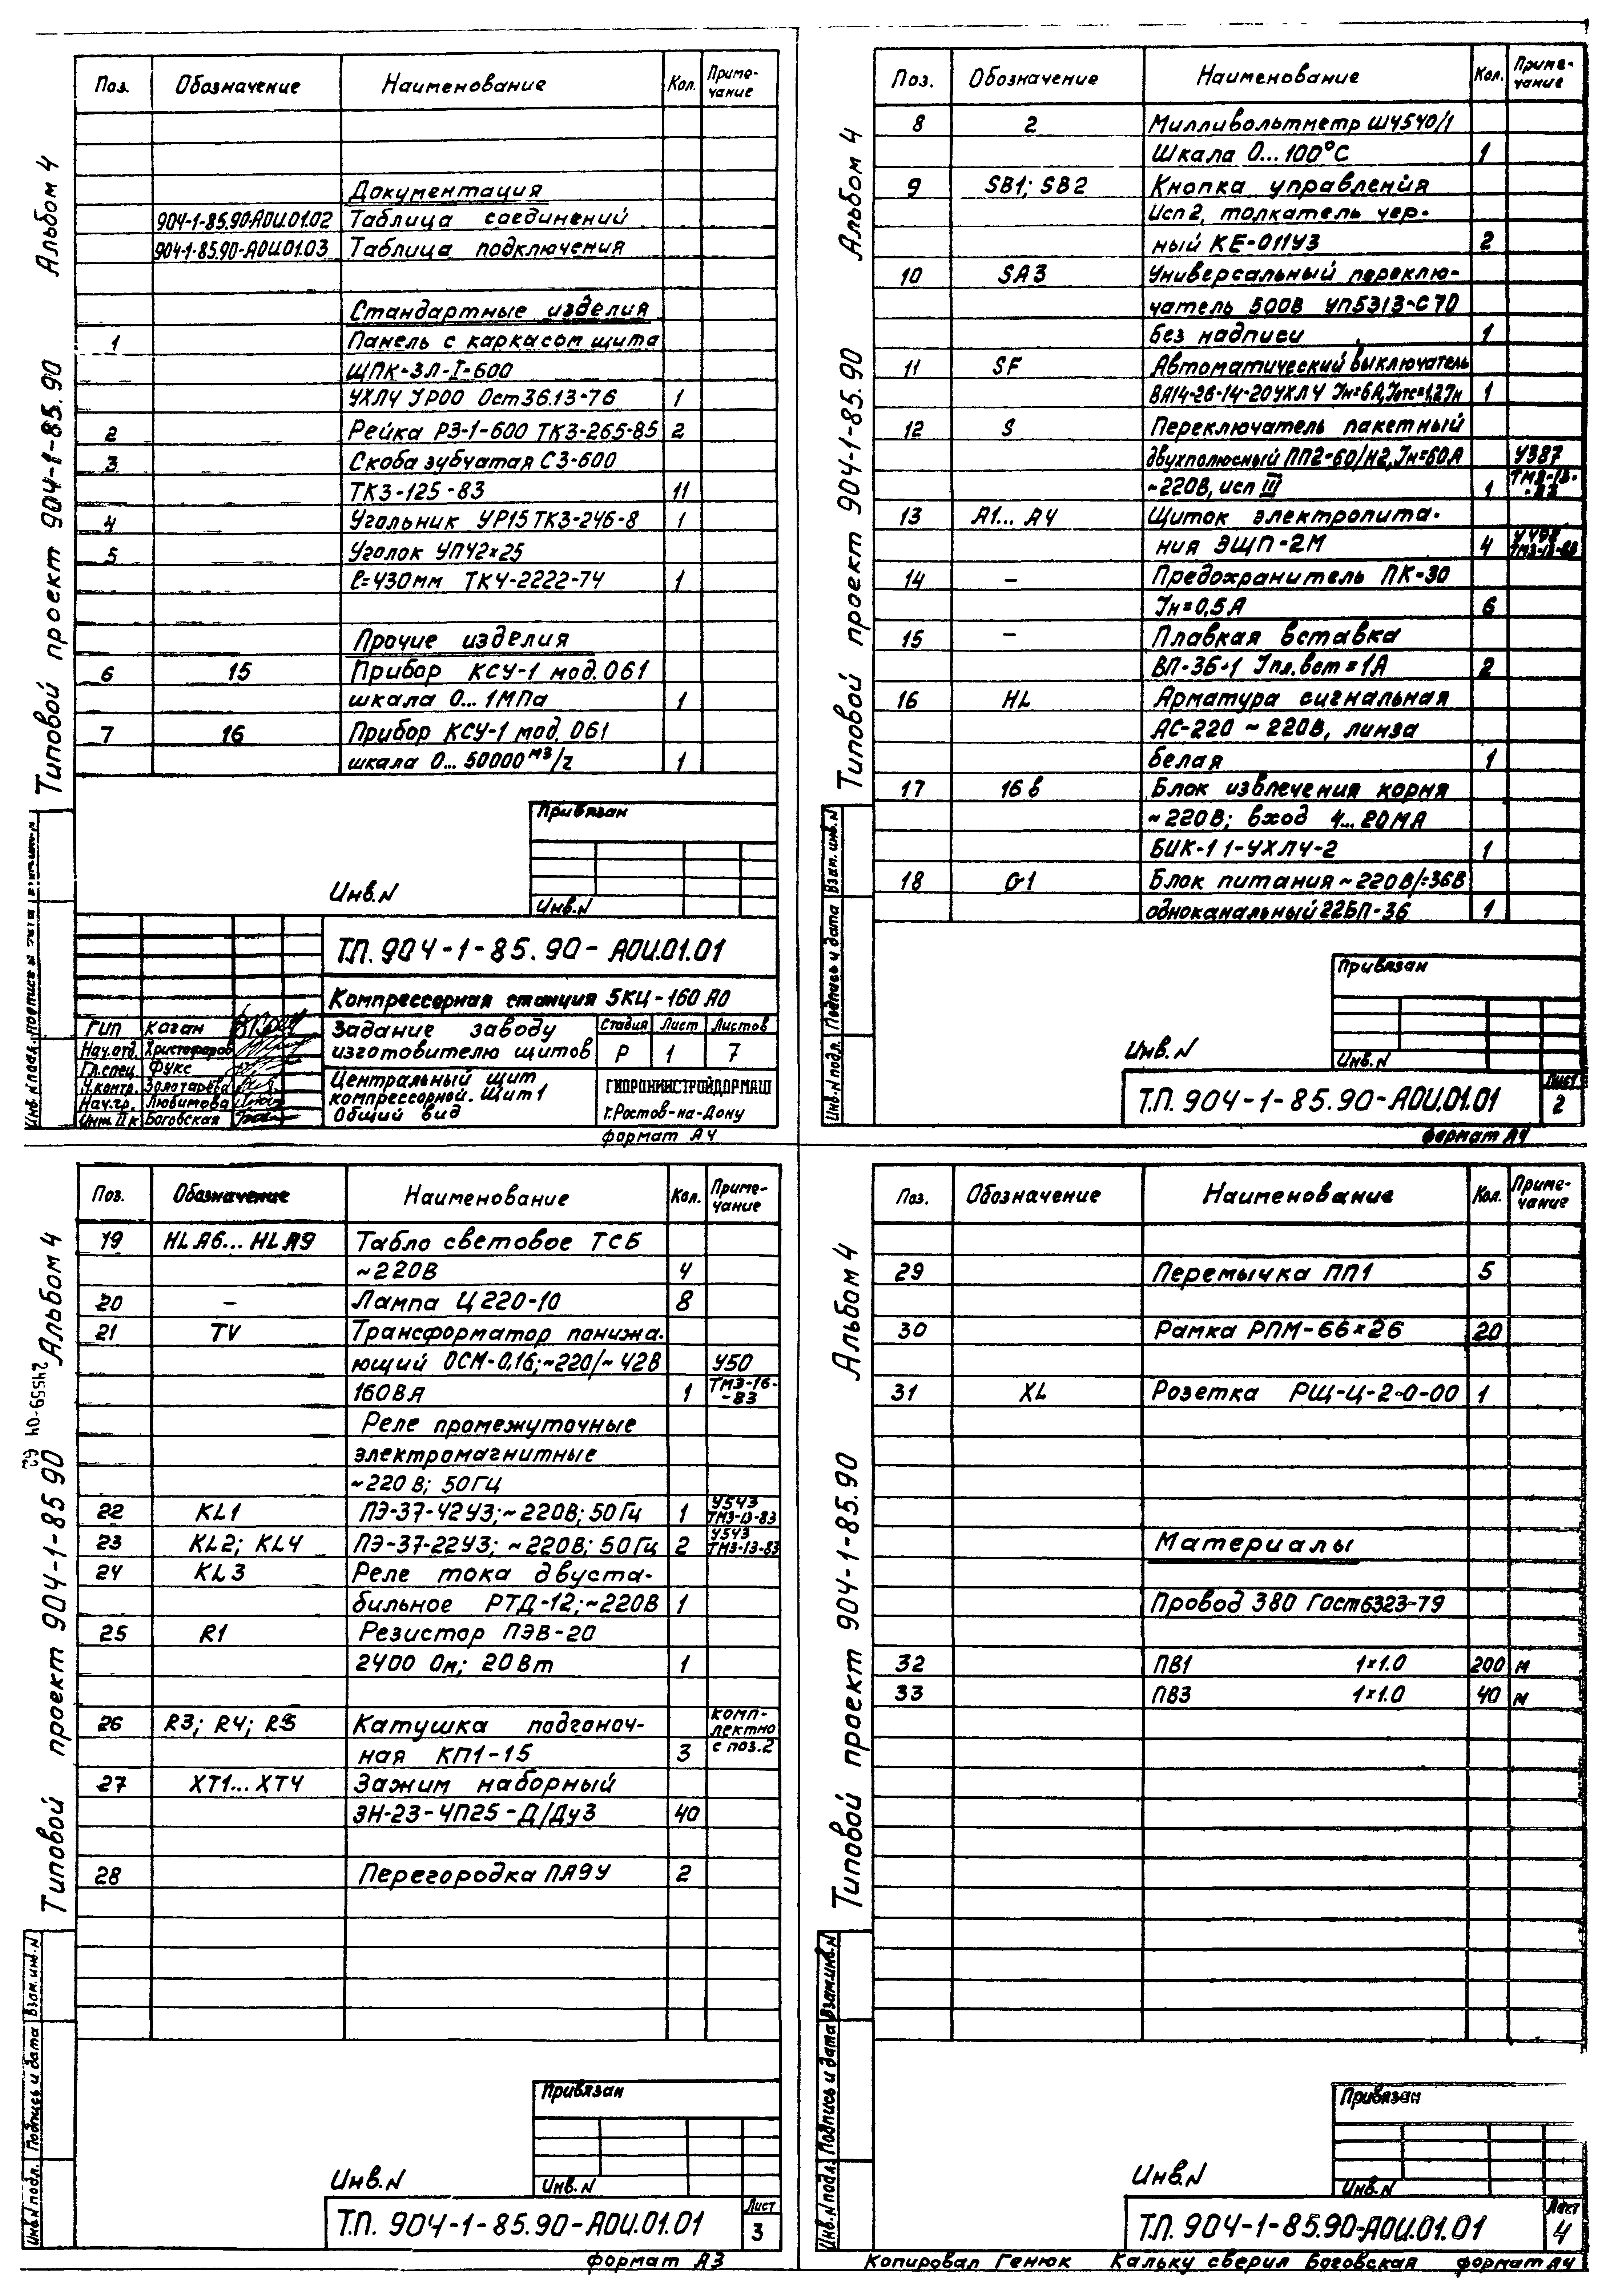 Альбом 4
Типовой проект 904-1-85.90
Поз. Обозначение Наименование Кол. Примечание
Документация
904-1-85.90-АОИ.01.02 Таблица соединений
904-1-85.90-АОИ.01.03 Таблица подключения
Стандартные изделия
1 Панель с каркасом щита
ЩПК-ЗЛ-I-600
УХЛ4 IP00 Ост 36.13-76 1
2 Рейка РЗ-1-600 ТК3-265-85 2
3 Скоба зубчатая СЗ-600
ТК3-125-83 11
4 Угольник УР15 ТК3-246-8 1
5 Уголок УП42х25
ℓ=430мм ТК4-2222-74 1
Прочие изделия
6 15 Прибор КСУ-1 мод. 061
шкала 0...1МПа 1
7 16 Прибор КСУ-1 мод. 061
шкала 0... 50000 м3/г 1
Привязан
Инв.N
Инв.N
Т.П. 904-1-85.90-АОИ.01.01
Компрессорная станция 5КЦ-160 АО
Гип Каган
Нач.отд. Христофоров
Гл.спец Фукс
Н.контр. Золотарева
Нач.гр. Любимова
Инж. II к Боговская
Задание заводу
изготовителю щитов
Стадия Лист Листов
Р 1 7
Центральный щит
компрессорной. Щит 1
Общий вид
ГИПРОНИИСТРОЙДОРМАШ
г.Ростов-на-Дону
формат А4
Альбом 4
Типовой проект 904-1-85.90
Поз. Обозначение Наименование Кол. Примечание
8 2 Милливольтметр Ш4540/1
Шкала 0...100°С 1
9 SB1; SB2 Кнопка управления
Исп 2, толкатель чер-
ный КЕ-011У3 2
10 SA3 Универсальный переклю-
чатель 500В УП5313-С70
без надписи 1
11 SF Автоматический выключатель
ВА14-26-14-20УХЛ4 Iн=6А, Iотс=1,2Iн 1
12 S Переключатель пакетный
двухполюсный ПП2-60/Н2, Iн=60А У387
~220В, исп III 1 ТМ3-13-
13 А1... А4 Щиток электропита-
ния ЭЩП-2М 4
14 - Предохранитель ПК-30
Iн=0,5А 6
15 - Плавкая вставка
ВП-36-1 Iпл.вст=1А 2
16 HL Арматура сигнальная
АС-220 ~220В, линза
белая 1
17 16в Блок извлечения корня
~220В; вход 4...20МА
БИК-1 1-УХЛ4-2 1
18 G1 Блок питания ~220В/=36В
одноканальный 22БП-36 1
Привязан
Инв.N
Инв.N
Инв.N подл. Подпись и дата Взам. инв.N
Т.П. 904-1-85.90-АОИ.01.01
Лист
2
формат А4
24559-04 62
Альбом 4
Типовой проект 904-1-85 90
Поз. Обозначение Наименование Кол. Примечание
19 HLA6... HLA9 Табло световое ТСБ
~220В 4
20 - Лампа Ц220-10 8
21 TV Трансформатор понижа-
ющий ОСМ-0,16;~220/~42В У50
160ВА 1 ТМ3-16-
-83
Реле промежуточные
электромагнитные
~220В; 50Гц
22 KL1 ПЭ-37-42У3;~220В; 50Гц 1 У543 ТМ3-13-83
23 KL2; KL4 ПЭ-37-22У3; ~220В; 50Гц 2 У543 ТМ3-13-83
24 KL3 Реле тока двуста-
бильное РТД-12;~220В 1
25 R1 Резистор ПЭВ-20
2400 Ом; 20Вт 1
26 R3; R4; R5 Катушка подгоноч- комп-
лектно
ная КП1-15 3 с поз.2
27 XT1...XT4 Зажим наборный
ЗН-23-4П25-Д/Ду3 40
28 Перегородка ПА94 2
Привязан
Инв.N
Инв.N
Инв.N подл. Подпись и дата Взам.инв.N
Т.П. 904-1-85.90-АОИ.01.01
Лист
3
формат А3
Альбом 4
Типовой проект 904-1-85.90
Поз. Обозначение Наименование Кол. Примечание
29 Перемычка ПП1 5
30 Рамка РПМ-66х26 20
31 XL Розетка РЩ-Ц-2-0-00 1
Материалы
Провод 380 Гост 6323-79
32 ПВ1 1х1.0 200 м
33 ПВ3 1х1.0 40 м
Привязан
Инв.N
Инв.N
Инв.N подл. Подпись и дата Взам.инв.N
Т.П. 904-1-85.90-АОИ.01.01
Лист
4
Копировал Генюк Кальку сверил Боговская формат А4